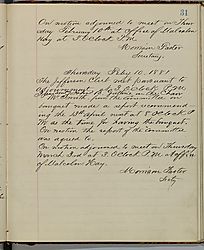 31
On motion adjourned to meet on Thurs
day February 10th at Office of Malcolm
Hay at 3. O'clock P.M.
Morrison Foster
Secretary.
Thursday Feby 10. 1881
The Jefferson Club met pursuant to
adjournment at 3 O'clock P.M.
in the Chair
Mr from the committee on
banquet made a report recommend
ing the 13th April next at 8 O'Clock P.
M as the time for having the banquet.
On motion the report of the committee
was agreed to.
On motion adjourned to meet on Thursday
March 3rd at 3. O'Clock P.M. at office
of Malcolm Hay.
Morrison Foster
Secty.